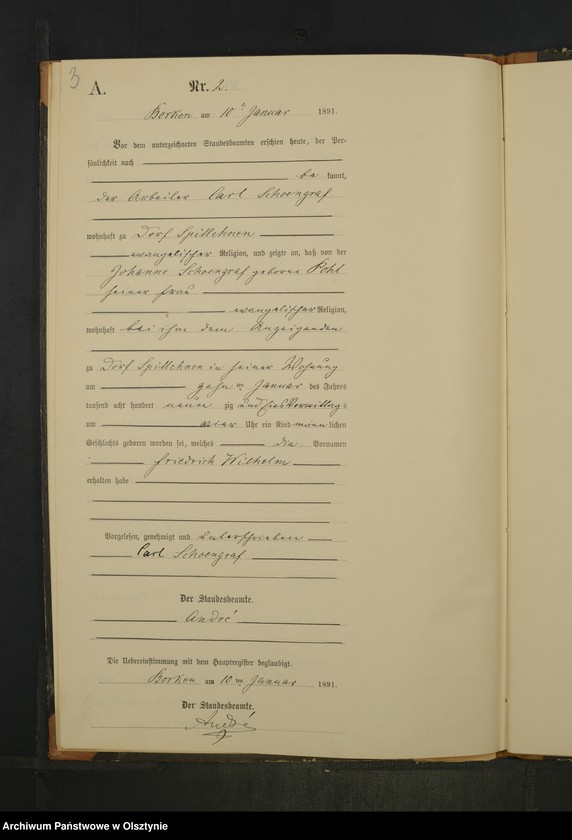 3
A. Nr. 2.
Borken am 10 ten Januar 1891.
Vor dem unterzeichneten Standesbeamten erschien heute, der Per-
sönlichkeit nach
be kannt,
der Arbeiter Carl Schoengraf
wohnhaft zu Dorf Spittehnen
evangelischer Religion, und zeigte an, daß von der
Johanne Schoengraf geborne Pohl
seiner Frau
evangelischer Religion,
wohnhaft bei ihm dem Anzeigenden
zu Dorf Spittehnen in seiner Wohnung
am zehn ten Januar des Jahres
tausend acht hundert neun zig und eins Vormittags
um Uhr ein Kind männlichen
Geschlechts geboren worden sei, welches die Vornamen
Friedrich Wilhelm
erhalten habe
Vorgelesen, genehmigt und unterschrieben
Carl Schoengraf
Der Standesbeamte.
André
Die Uebereinstimmung mit dem Hauptregister beglaubigt.
Borken am 10 ten Januar 1891.
Der Standesbeamte.
André
Archiwum Państwowe w Olsztynie